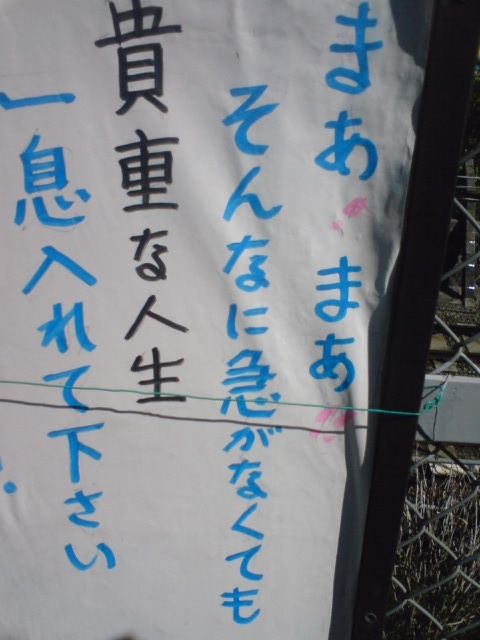 まあまあ
そんなに急がなくても
貴重な人生
一息入れて下さい